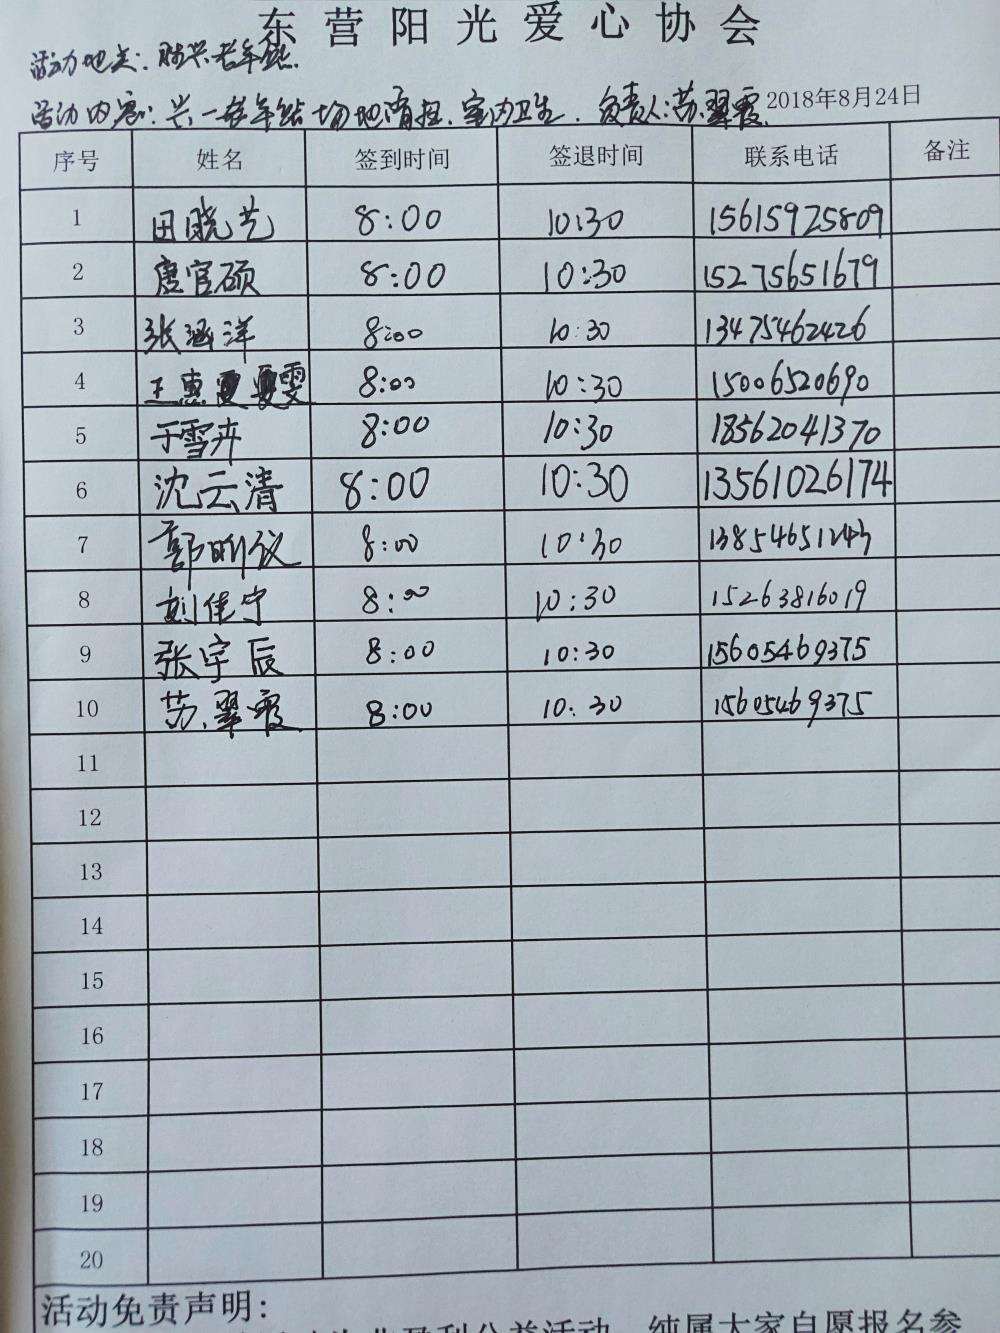 东营阳光爱心协会
活动地点：胜兴老年馆
活动内容：兴一老年馆场地清扫、室内卫生. 负责人:苏翠霞 2018年8月24日
序号 姓名 签到时间 签退时间 联系电话 备注
1 田晓艺 8:00 10:30 15615925809
2 唐官硕 8:00 10:30 15275651679
3 张涵洋 8:00 10:30 13475462426
4 王惠雯 8:00 10:30 15006520690
5 于雪卉 8:00 10:30 18562041370
6 沈云清 8:00 10:30 13561026174
7 郭昕仪 8:00 10:30 13854651243
8 刘佳宁 8:00 10:30 15263816019
9 张宇辰 8:00 10:30 15605469375
10 苏翠霞 8:00 10:30 15605469375
11
12
13
14
15
16
17
18
19
20
活动免责声明：
非盈利公益活动，纯属大家自愿报名参